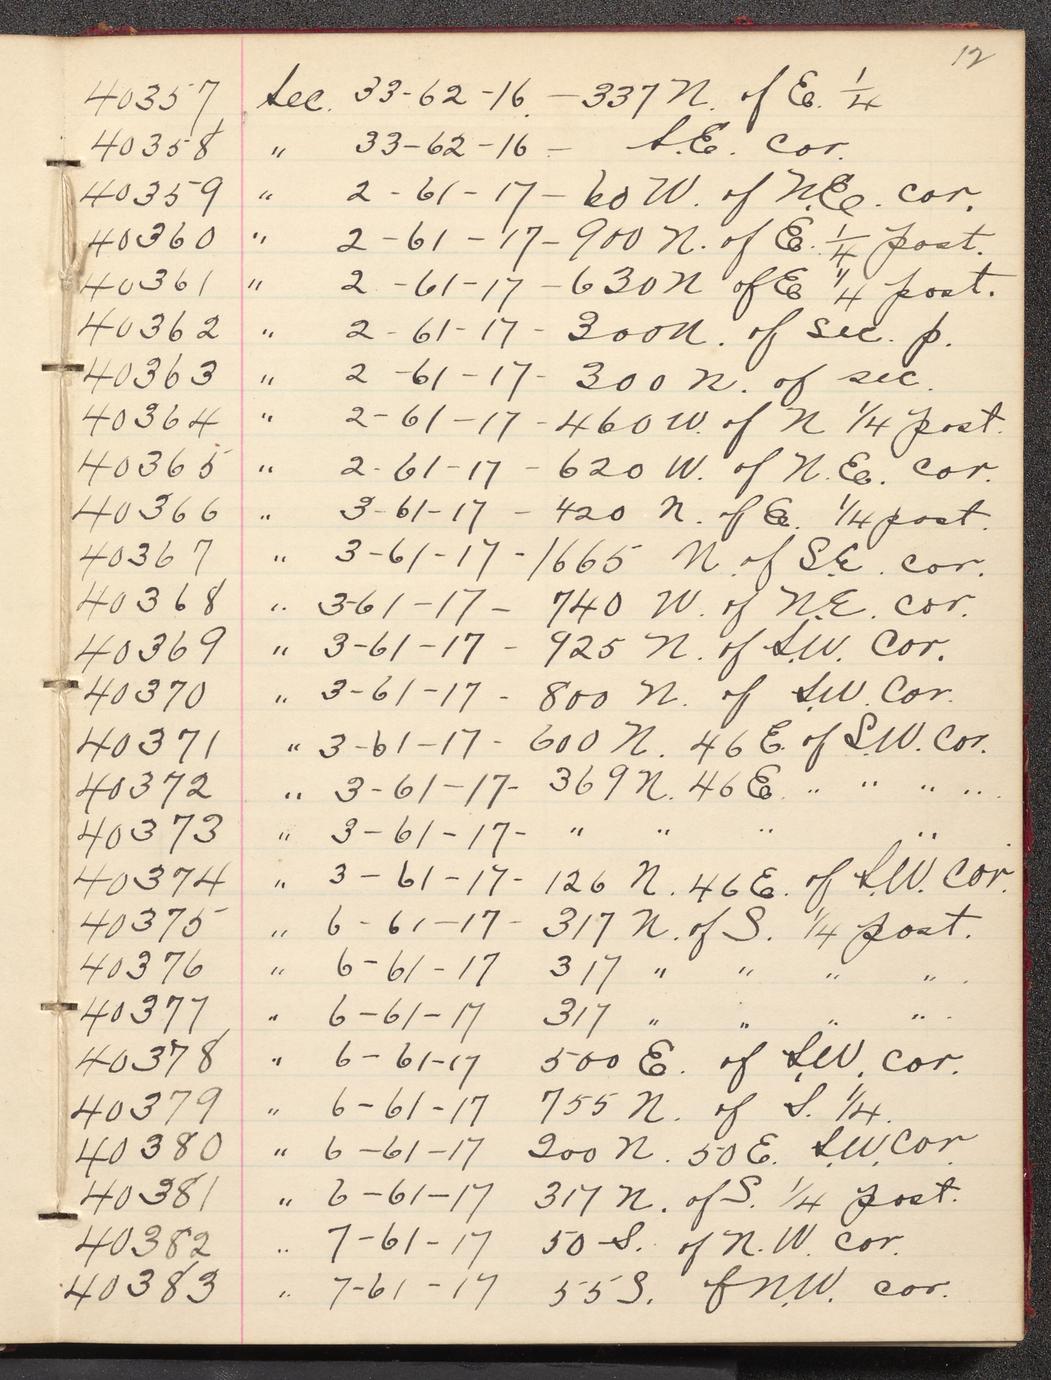 12
40357 Sec. 33-62-16 - 337 N. of E. 1/4
40358 " 33-62-16 - S.E. cor.
40359 " 2-61-17 - 60 W. of N.E. cor.
40360 " 2-61-17 - 900 N. of E. 1/4 post.
40361 " 2-61-17 - 630 N of E 1/4 post.
40362 " 2-61-17 - 300 N. of sec. p.
40363 " 2-61-17 - 300 N. of sec.
40364 " 2-61-17 - 460 W. of N 1/4 post.
40365 " 2-61-17 - 620 W. of N.E. cor.
40366 " 3-61-17 - 420 N. of E. 1/4 post.
40367 " 3-61-17 - 1665 N. of S.E. cor.
40368 " 3-61-17 - 740 W. of N.E. cor.
40369 " 3-61-17 - 925 N. of S.W. Cor.
40370 " 3-61-17 - 800 N. of S.W. Cor.
40371 " 3-61-17 - 600 N. 46 E. of S.W. Cor.
40372 " 3-61-17 - 369 N. 46 E. " " " "
40373 " 3-61-17 - " " " "
40374 " 3-61-17 - 126 N. 46 E. of S.W. Cor.
40375 " 6-61-17 - 317 N. of S. 1/4 post.
40376 " 6-61-17 317 " " " "
40377 " 6-61-17 317 " " " "
40378 " 6-61-17 500 E. of S.W. cor.
40379 " 6-61-17 755 N. of S. 1/4.
40380 " 6-61-17 200 N. 50 E. S.W. Cor
40381 " 6-61-17 317 N. of S. 1/4 post.
40382 " 7-61-17 50 S. of N.W. cor.
40383 " 7-61-17 55 S. of N.W. cor.